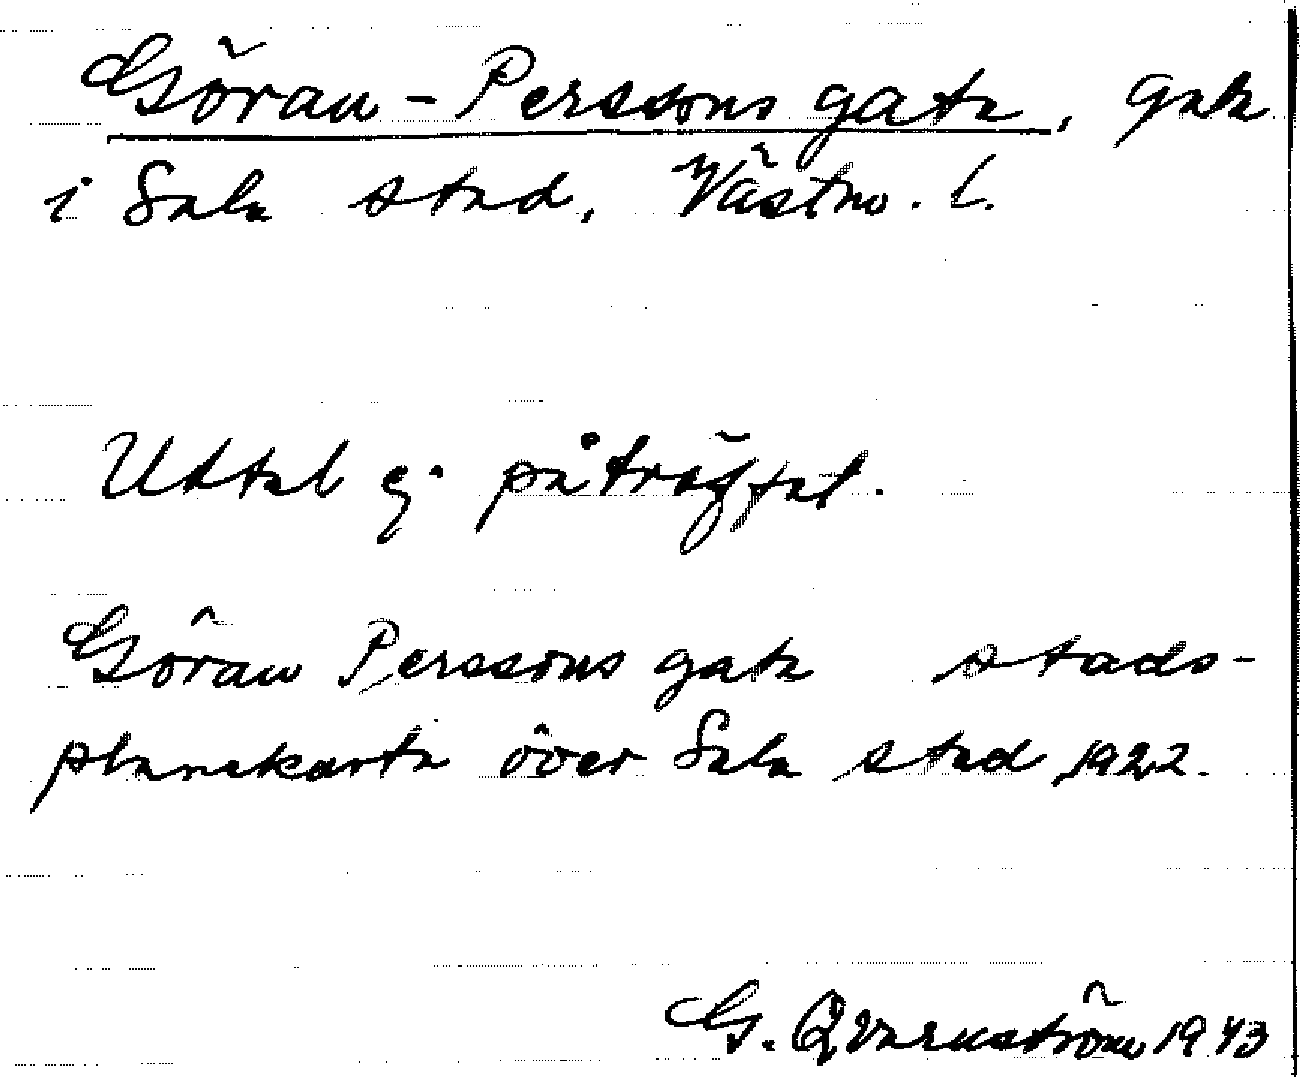 Göran-Perssons gata, gata
i Sala stad, Västm. l.
Uttal ej påträffat.
Göran Perssons gata stads-
planekarta över Sala stad 1922.
G. Qvarnström 1943